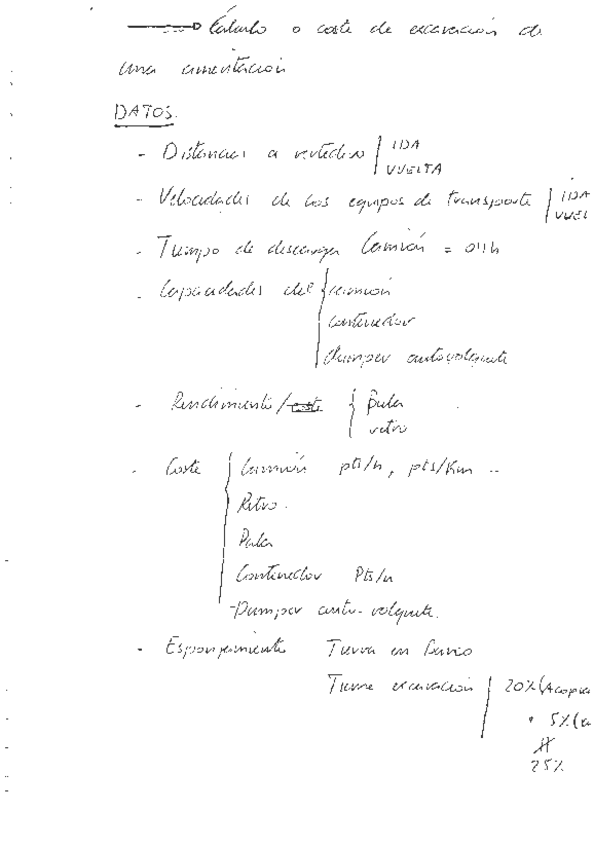 Cálculo o coste de excavación de
una cimentación
DATOS.
- Distancias a vertedero | IDA
VUELTA
- Velocidades de los equipos de transporte | IDA
VUEL
- Tiempo de descarga Camión = 0'1 h
- Capacidades del { camión
contenedor
dumper autovolquete
- Rendimiento/coste { Pala
retro
- Coste { Camión pts/h, pts/Km ..
Retro.
Pala
Contenedor Pts/h
- Dumper auto-volquete.
- Esponjamiento Tierra en Banco
Tierra excavación | 20% (Acopia
+ 5% (
25%